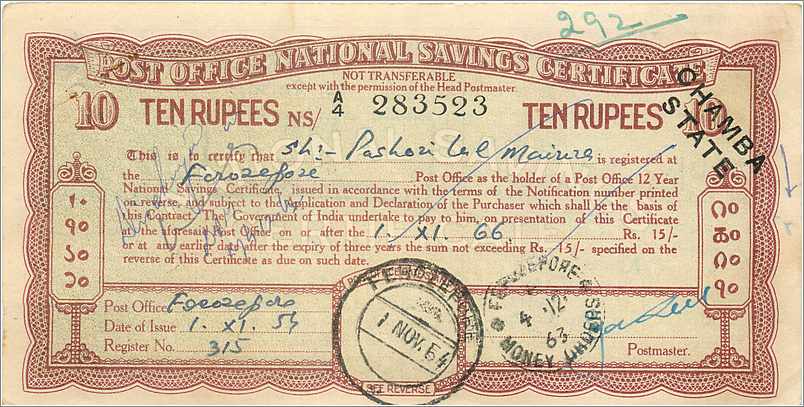 292
POST OFFICE NATIONAL SAVINGS CERTIFICATE
NOT TRANSFERABLE
except with the permission of the Head Postmaster.
CHAMBA
STATE
10 TEN RUPEES NS/ A/4 283523 TEN RUPEES 10
This is to certify that Sh:- Pashori Lal is registered at
the Ferozepore Post Office as the holder of a Post Office 12 Year
National Savings Certificate, issued in accordance with the terms of the Notification number printed
on reverse, and subject to the Application and Declaration of the Purchaser which shall be the basis of
this Contract. The Government of India undertake to pay to him, on presentation of this Certificate
at the foresaid Post Office on or after the 1. XI. 66 Rs. 15/-
or at any earlier date after the expiry of three years the sum not exceeding Rs. 15/- specified on the
reverse of this Certificate as due on such date.
Post Office Ferozepore
Date of Issue 1. XI. 54
Register No. 315
FEROZEPORE
1 NOV. 54
(SEE REVERSE)
FEROZEPORE
4 12
63
MONEY ORDERS
Postmaster.